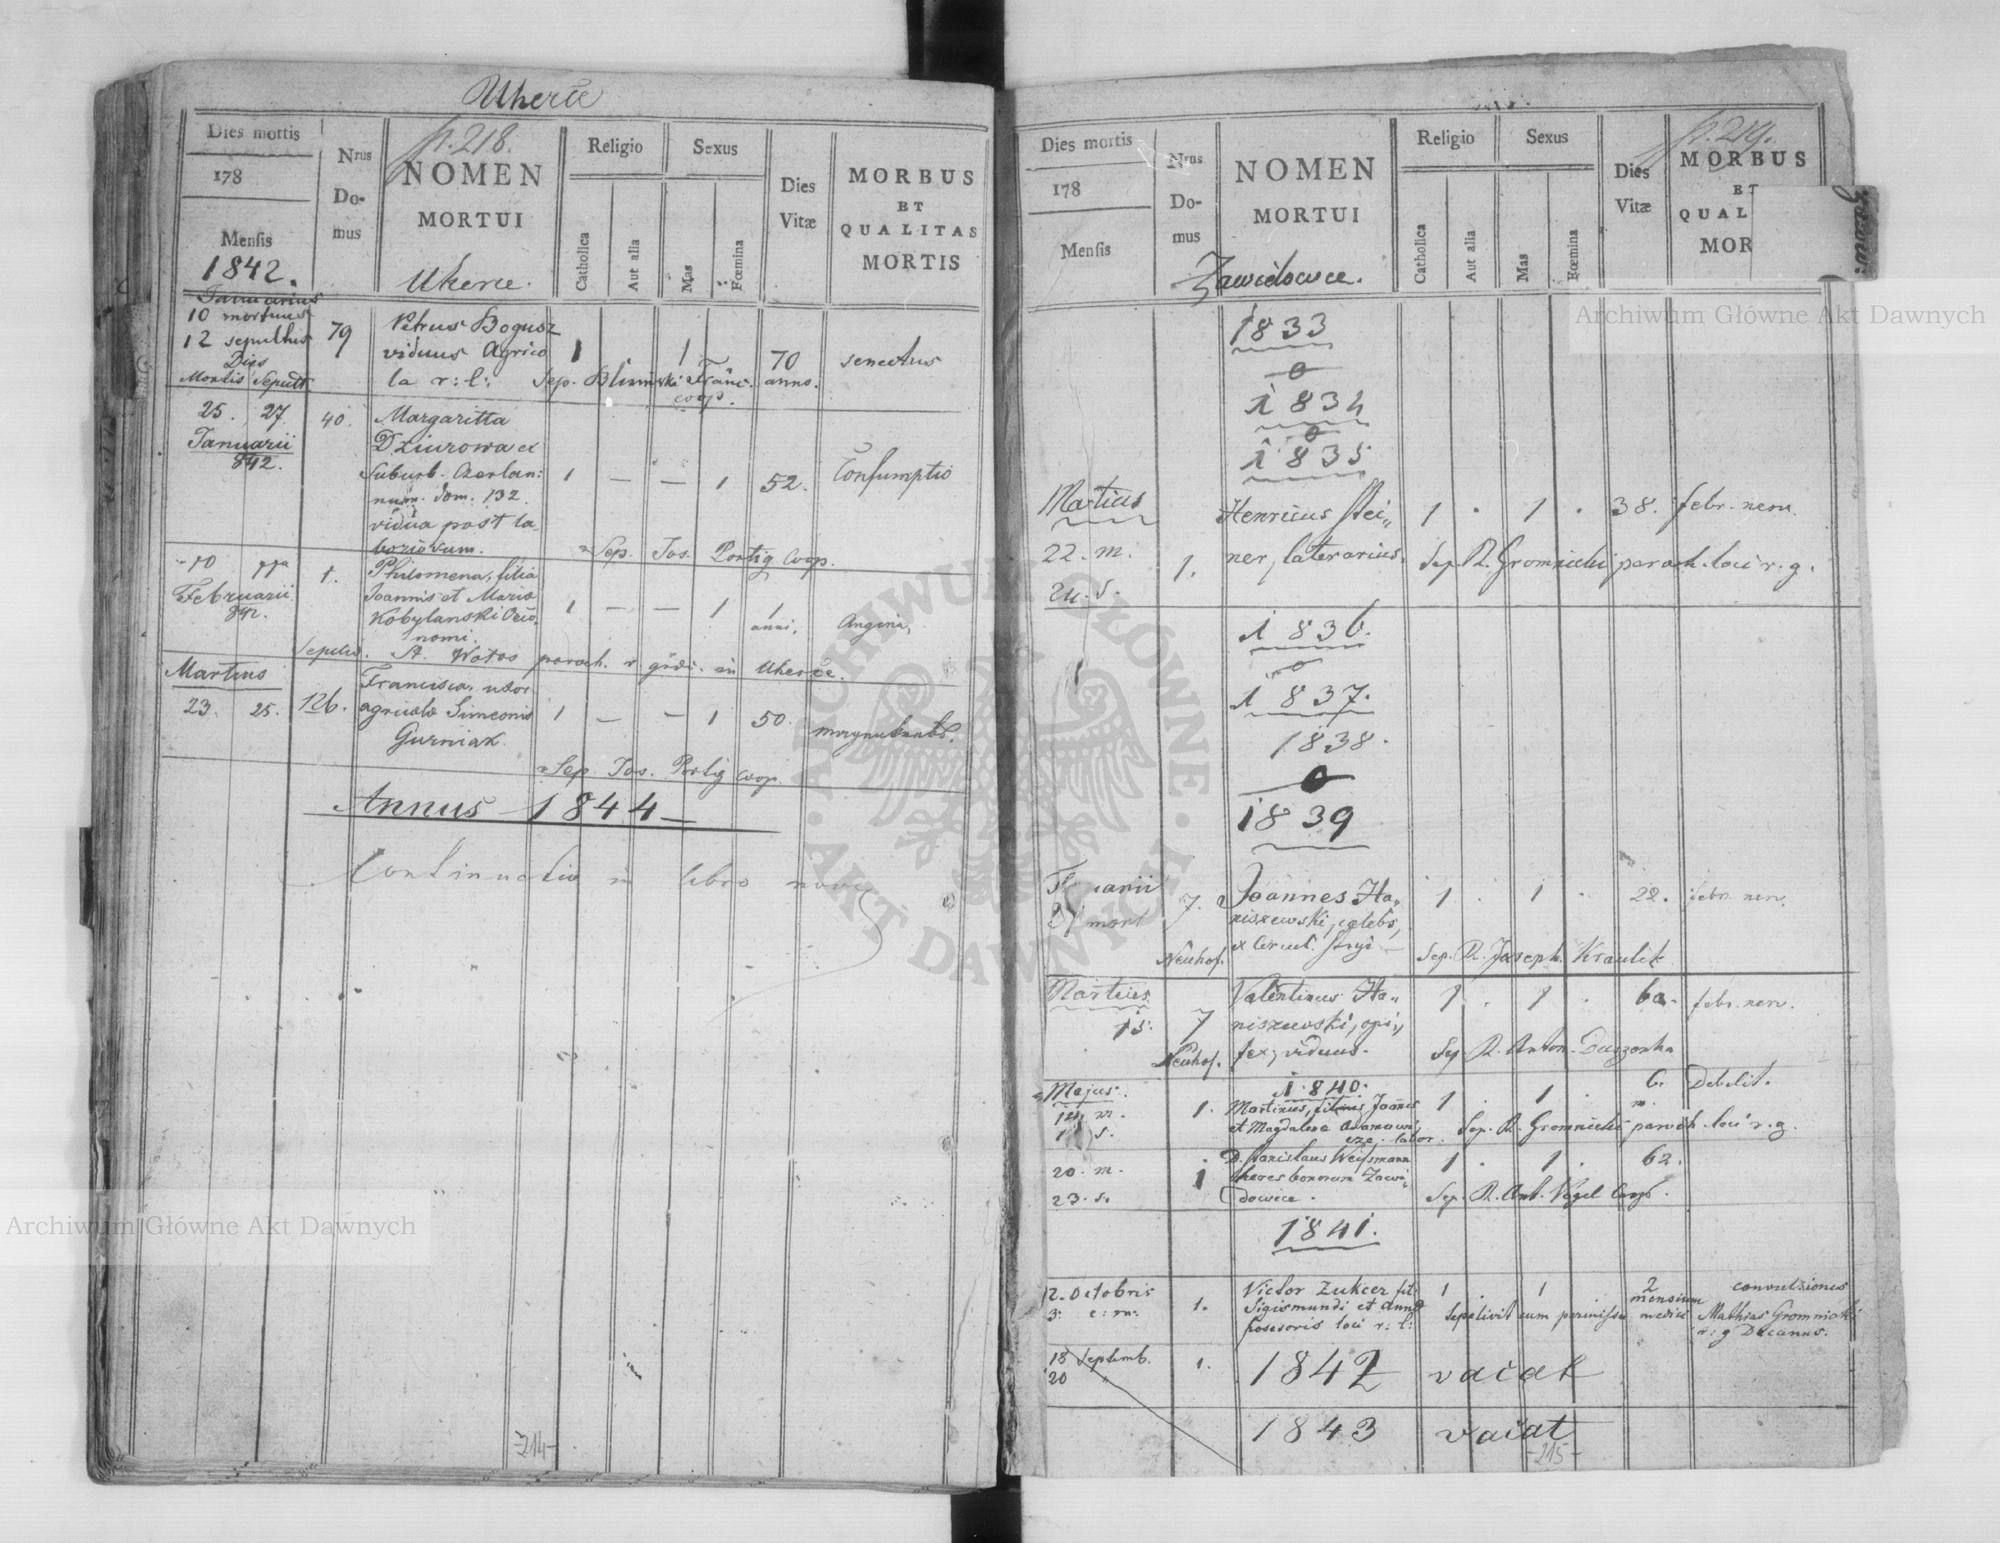 Uherce
Dies mortis
178
Mensis
1842.
Nrus
Do-
mus
p. 218.
NOMEN
MORTUI
Uherce.
Religio
Catholica
Aut alia
Sexus
Mas
Fœmina
Dies
Vitæ
MORBUS
ET
QUALITAS
MORTIS
Januarius
10 mortuus
12 sepultus
Dies
Mortis Sepult
79
Petrus Bogusz
viduus Agrico
la r: l:
1
1
70
anno.
senectus
Sep. Franc.
coop.
25. 27
Januarii
842.
40.
Margaritta
Dziurowa ex
Suburb. Czerlan:
num. dom. 132
vidua post la-
boriosum.
1 — — 1
52.
Consumptio
Sep. Jos. Portig Coop.
10
Februarii
842.
1.
Philomena, filia
Joannis et Maria
Kobylanski Oeco-
nomi.
1 — — 1
1
anni,
Angina,
Sepeliv. A. Wotos paroch. r. gr. in Uherce.
Martius
23. 25.
126.
Francisca, uxor
agricola Simeonis
Gurniak.
1 — — 1
50.
Sep. Jos. Portig coop.
Annus 1844
Continuatio in libro novo
-214-
Dies mortis
178
Mensis
Nrus
Do-
mus
NOMEN
MORTUI
Zawidowce.
Religio
Catholica
Aut alia
Sexus
Mas
Fœmina
Dies
Vitæ
p. 219.
MORBUS
ET
QUAL
MOR
1833
0
1834
0
1835
Martius
22. m.
24. s.
1.
Henricus Stei„
ner, laterarius.
1 . 1 .
38.
febr. nerv.
Sep. R. Gromnicki paroch. loci r. g.
1836.
0
1837.
1838.
0
1839
mort
7.
Neuhof.
Joannes Ha„
niszewski, celebs,
ex Circul. Stryi
1 . 1 .
22.
febr. nerv.
Sep. R. Joseph. Kraulik
Martius
15.
7
Neuhof.
Valentinus Ha„
niszewski, opi„
fex, viduus.
1 . 1 .
60.
febr. nerv.
Sep. R. Anton.
Majus.
m.
s.
1.
1840.
Martinus, filius Joannis
et Magdalena Adamowi
cze. labor.
1 . 1 .
6.
m.
Debilit.
Sep. R. Gromnicki paroch. loci r. g.
20. m.
23. s.
1
D. Stanislaus Weissmann
heres bonorum Zawi„
dowice.
1 . 1 .
62.
Sep. R. Ant. Vogel Coop.
1841.
2. Octobris
3: e: m:
1.
Victor Zukcer fil:
Sigismundi et Anna
Posesoris loci r: l:
1 . 1 .
2
mensium
convulsiones
Sepelivit cum permissu medici Mathias Gromnicki
r: g Decanus.
18 Septemb.
20 "
1.
1842 vacat
1843 vacat
-215-
Archiwum Główne Akt Dawnych
Archiwum Główne Akt Dawnych
ARCHIWUM GŁÓWNE AKT DAWNYCH